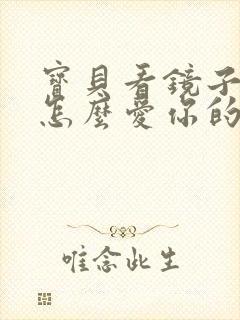 寶貝看鏡子
怎麼愛你的
唯念此生